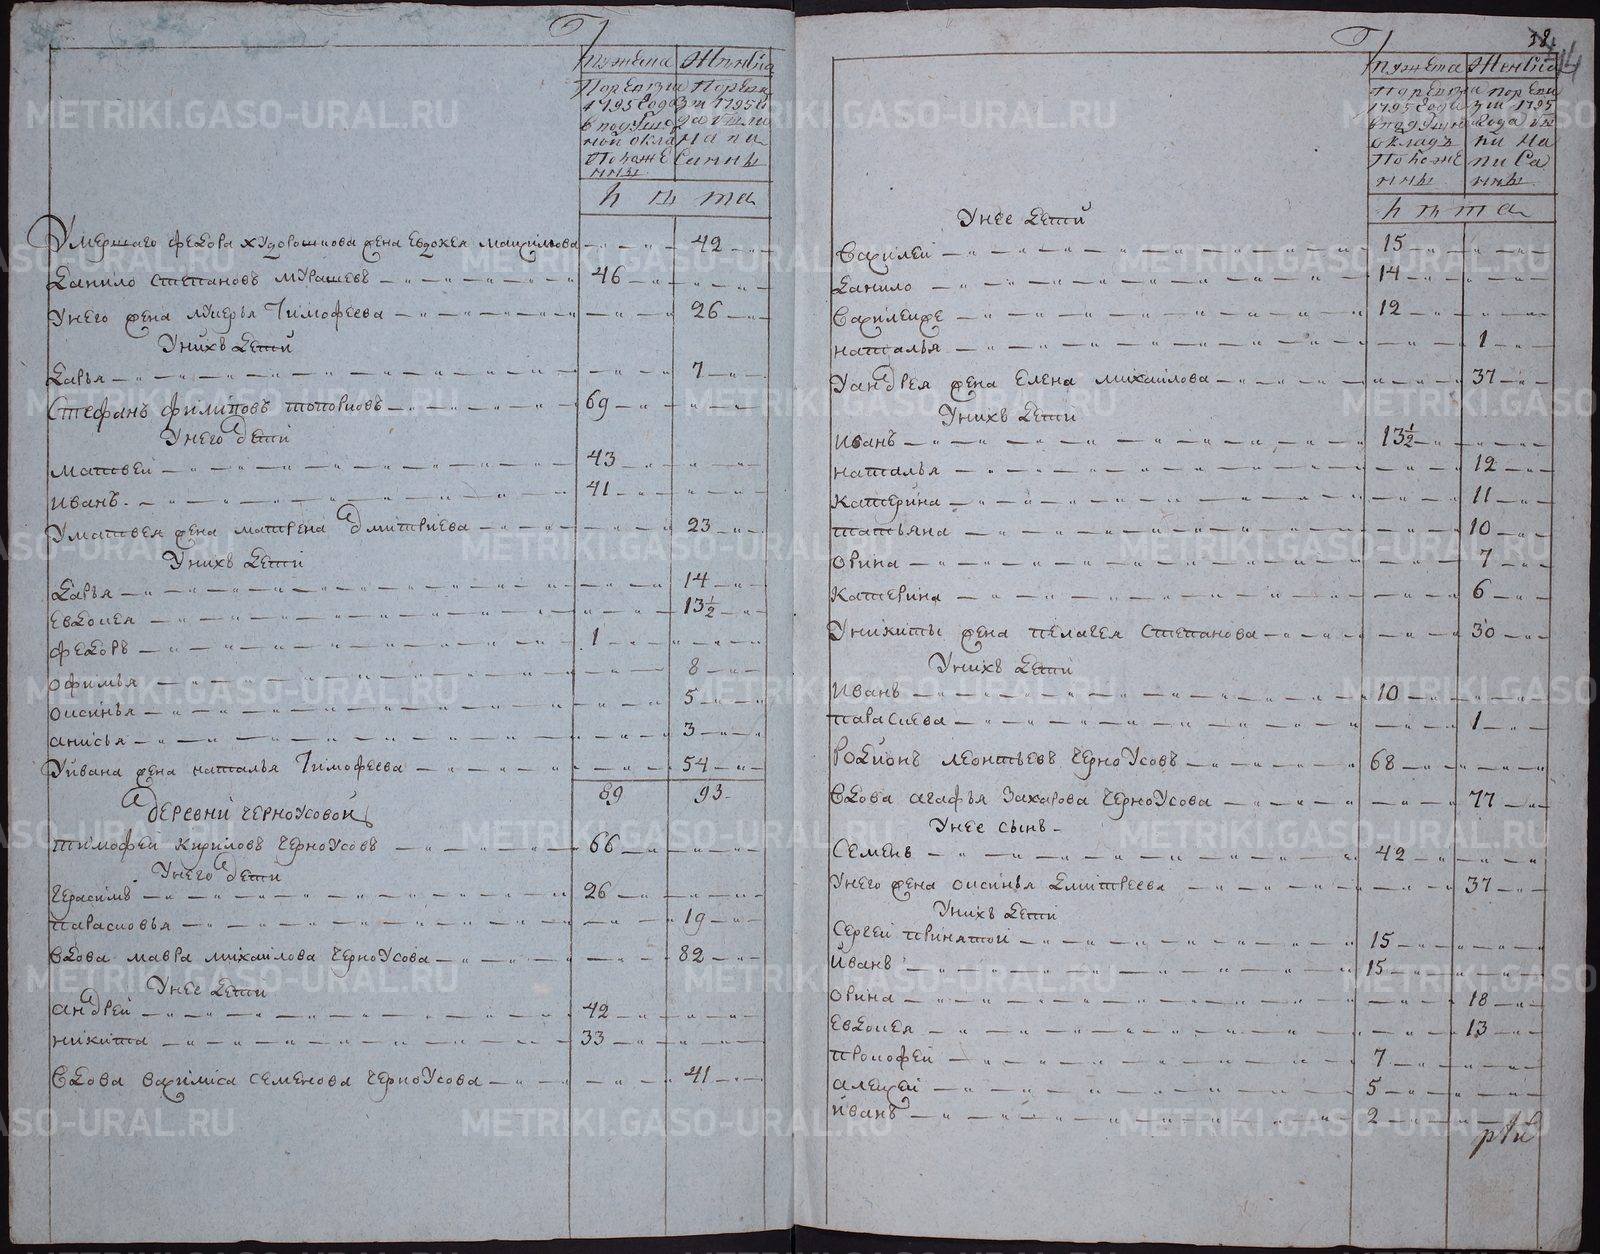 Мужеска Женска
По ревизии 1795 года в подушной оклад положенны
По ревизии 1795 года написанны
лѣта
Умершаго Федора Худорошкова жена Евдокея 42
Данило Степановъ Мурашевъ 46
У него жена Лукерья Тимофеева 26
У нихъ дети
Дарья 7
Стефанъ Филиповъ Топорковъ 69
У него дети
Матвей 43
Иванъ 41
У Матвея жена Матрена Дмитриева 23
У нихъ дети
Дарья 14
Евдокея 13½
Федоръ 1
Офимья 8
Оксинья 5
Анисья 3
У Ивана жена Наталья Тимофеева 54
89 93
Деревни Черноусовой
Тимофей Кириловъ Черноусовъ 66
У него дети
Герасимъ 26
Парасковья 19
Вдова Мавра Михаилова Черноусова 82
У нее дети
Андрей 42
Никита 33
Вдова Вахилиса Семенова Черноусова 41
38
44
Мужеска Женска
По ревизии 1795 года в подушной окладъ положенны
По ревизии 1795 года написанны
лѣта
У нее дети
Вахилей 15
Данило 14
Вахилей же 12
Наталья 1
У Андрея жена Елена Михаилова 37
У нихъ дети
Иванъ 13½
Наталья 12
Катерина 11
Татьяна 10
Орина 7
Катерина 6
У Никиты жена Пелагея Степанова 30
У нихъ дети
Иванъ 10
Параскева 1
Родионъ Леонтьевъ Черноусовъ 68
Вдова Агафья Захарова Черноусова 77
У нее сынъ
Семенъ 42
У него жена Оксинья Дмитреева 37
У нихъ дети
Сергей принятой 15
Иванъ 15
Орина 18
Евдокея 13
Прокофей 7
Алексей 5
Иванъ 2
METRIKI.GASO-URAL.RU